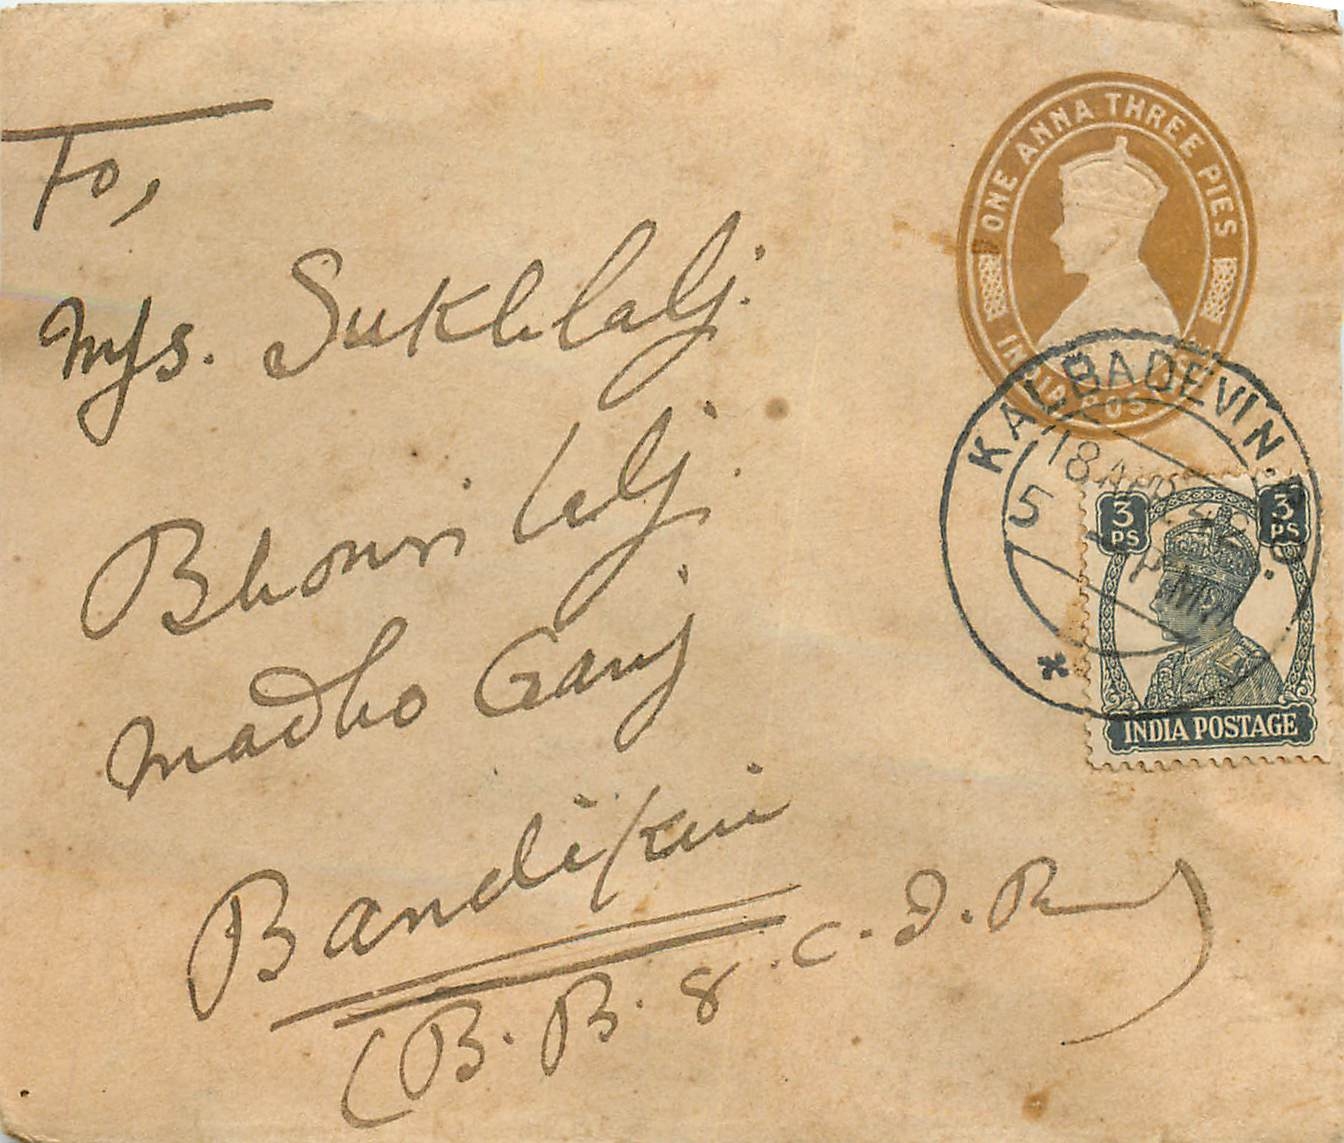 To,
M/s. Suklilalji.
Bhouri lalji.
Madho Ganj
Bandikui
(B. B. & C. I. R)
ONE ANNA THREE PIES
INDIA POSTAGE
KALBADEVI
18 APR
5 PM
3 PS 3 PS
INDIA POSTAGE